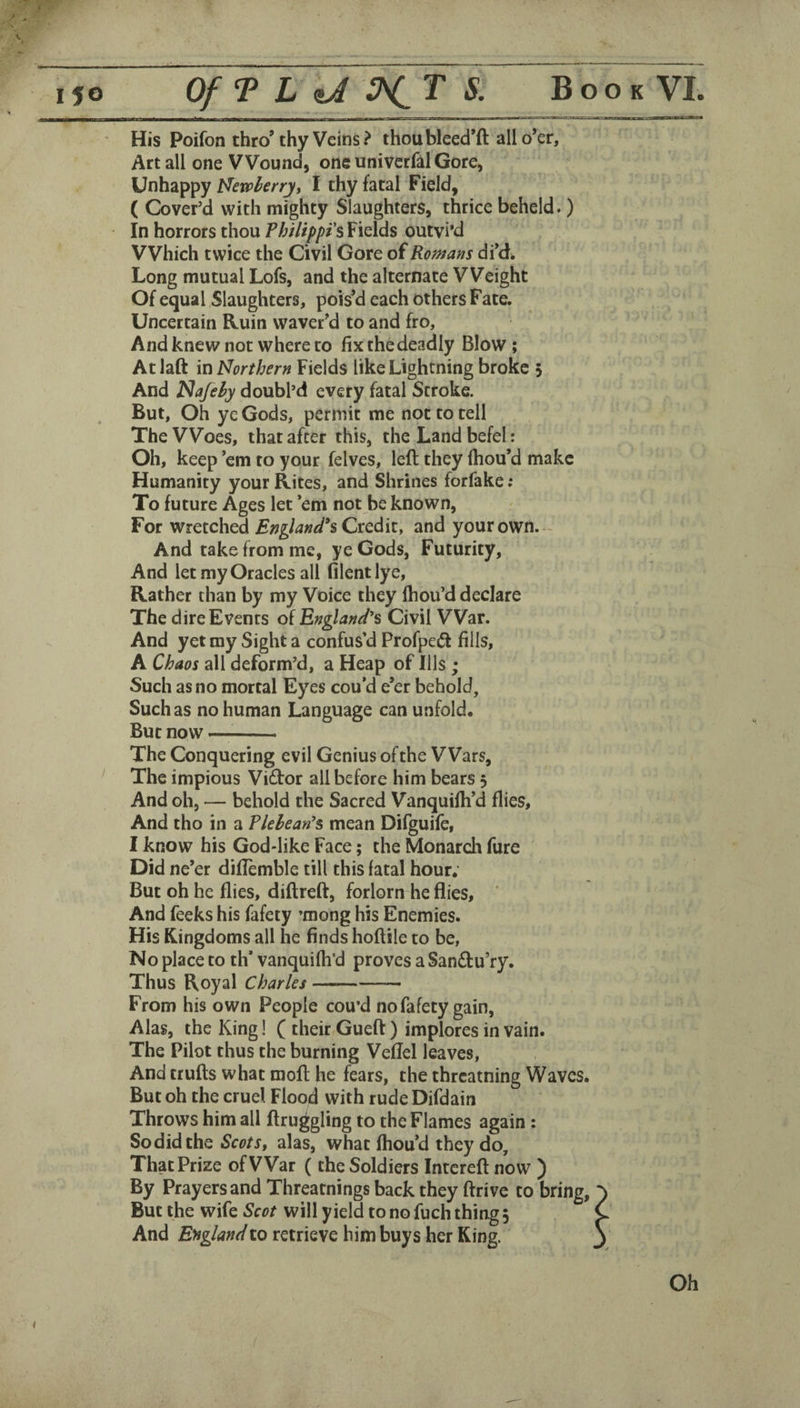 150 Of PLANTS. Book VI.
His Poiſon thro' thy Veins? thou bleed'ſt all o'er,
Art all one VVound, one univerſal Gore,
Unhappy Newberry, I thy fatal Field,
( Cover'd with mighty Slaughters, thrice beheld. )
In horrors thou Philippi's Fields outvi'd
VVhich twice the Civil Gore of Romans di'd.
Long mutual Loſs, and the alternate VVeight
Of equal Slaughters, pois'd each others Fate.
Uncertain Ruin waver'd to and fro,
And knew not where to fix the deadly Blow ;
At laſt in Northern Fields like Lightning broke ;
And Naſeby doubl'd every fatal Stroke.
But, Oh ye Gods, permit me not to tell
The VVoes, that after this, the Land befel :
Oh, keep 'em to your ſelves, leſt they ſhou'd make
Humanity your Rites, and Shrines forſake :
To future Ages let 'em not be known,
For wretched England's Credit, and your own.
And take from me, ye Gods, Futurity,
And let my Oracles all ſilent lye,
Rather than by my Voice they ſhou'd declare
The dire Events of England's Civil VVar.
And yet my Sight a confus'd Proſpect fills,
A Chaos all deform'd, a Heap of Ills ;
Such as no mortal Eyes cou'd e'er behold,
Such as no human Language can unfold.
But now ———
The Conquering evil Genius of the VVars,
The impious Victor all before him bears ;
And oh, — behold the Sacred Vanquiſh'd flies,
And tho in a Plebean's mean Diſguiſe,
I know his God-like Face ; the Monarch ſure
Did ne'er diſſemble till this fatal hour.
But oh he flies, diſtreſt, forlorn he flies,
And ſeeks his ſafety 'mong his Enemies.
His Kingdoms all he finds hoſtile to be,
No place to th' vanquiſh'd proves a Sanctu'ry.
Thus Royal Charles ———
From his own People cou'd no ſafety gain,
Alas, the King ! ( their Gueſt ) implores in vain.
The Pilot thus the burning Veſſel leaves,
And truſts what moſt he fears, the threatning Waves.
But oh the cruel Flood with rude Diſdain
Throws him all ſtruggling to the Flames again :
So did the Scots, alas, what ſhou'd they do,
That Prize of VVar ( the Soldiers Intereſt now )
By Prayers and Threatnings back they ſtrive to bring,
But the wiſe Scot will yield to no ſuch thing ;
And England to retrieve him buys her King.
Oh